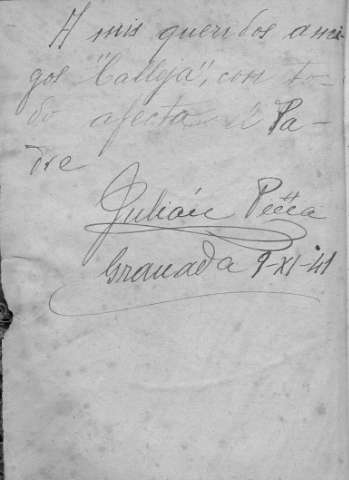 A mis queridos ami-
gos "Calleja", con to-
do afecto el Pa-
dre
Julián
Granada 9-XI-41